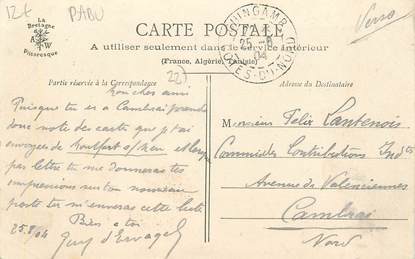 12€ PABU
Verso
La
Bretagne
A W
Pittoresque
CARTE POSTALE
A utiliser seulement dans le Service intérieur
(France, Algérie, Tunisie)
GUINGAMP
25 -8
04
COTES-DU-NORD
Partie réservée à la Correspondance
(22)
Adresse du Destinataire
Mon cher ami
Puisque tu es a Cambrai prends
donc note des cartes que j'ai
envoyées de Montfort s/Meu et
par lettre tu me donneras tes
impressions sur ton nouveau
poste tu m'enverras cette liste
Bien a toi
25.8.04 Guy d'
Monsieur Felix Lantenois
Commis des Contributions Ind tes
Avenue de Valenciennes
Cambrai
Nord